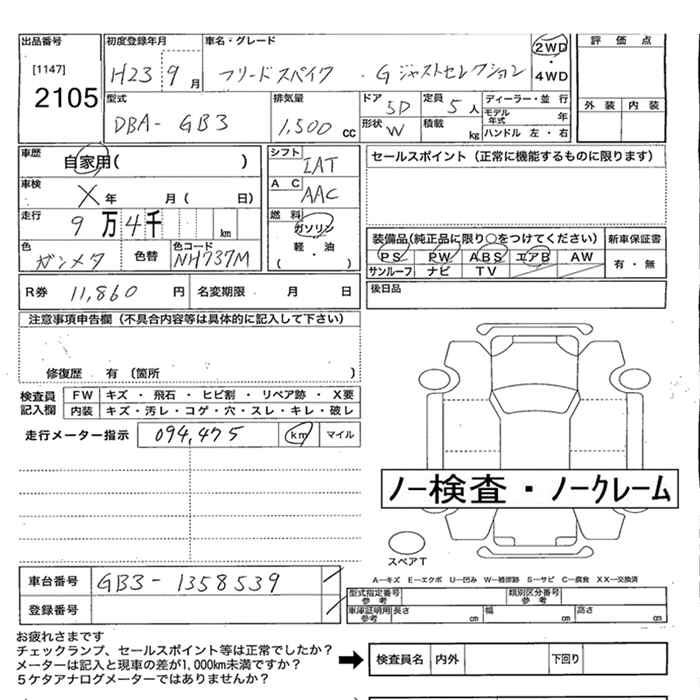 出品番号 初度登録年月 車名・グレード 評価点
[1147] H23 9月 フリードスパイク・Gジャストセレクション 2WD・4WD
2105 型式 排気量 ドア 5D 定員 5人 ディーラー・並行 外装 内装
DBA-GB3 1,500cc 形状 W 積載 kg モデル年式 年
ハンドル 左・右
車歴 自家用( ) シフト IAT セールスポイント(正常に機能するものに限ります)
車検 X年 月( 日) AC AAC
走行 9万4千 km 燃料 ガソリン 装備品(純正品に限り○をつけてください) 新車保証書
色 ガンメタ 色替 色コード NH737M 軽・油 PS PW ABS エアB AW 有・無
( ) サンルーフ ナビ TV
R券 11,860円 名変期限 月 日 後日品
注意事項申告欄(不具合内容等は具体的に記入して下さい)
修復歴 有(箇所 )
検査員記入欄 FW キズ・飛石・ヒビ割・リペア跡・X要
内装 キズ・汚レ・コゲ・穴・スレ・キレ・破レ
走行メーター指示 094,475 km マイル
ノー検査・ノークレーム
スペアT
A―キズ E―エクボ U―凹み W―補修跡 S―サビ C―腐食 XX―交換済
車台番号 GB3-1358539 型式指定番号 参考 類別区分番号 参考
登録番号 車庫証明用 参考 長さ cm 幅 cm 高さ cm
お疲れさまです
チェックランプ、セールスポイント等は正常でしたか?
メーターは記入と現車の差が1,000km未満ですか? ➡ 検査員名 内外 下回り
5ケタアナログメーターではありませんか?